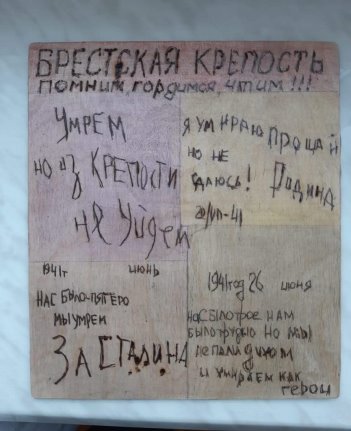 БРЕСТСКАЯ КРЕПОСТЬ
помним, гордимся, чтим!!!
УМРЕМ
НО ИЗ КРЕПОСТИ
НЕ УЙДЕМ
Я УМИРАЮ
НО НЕ
СДАЮСЬ!
ПРОЩАЙ
РОДИНА
20/VII-41
1941г ИЮНЬ
НАС БЫЛО ПЯТЕРО
МЫ УМРЕМ
ЗА СТАЛИНА
1941год 26 июня
НАС БЫЛО ТРОЕ НАМ
БЫЛО ТРУДНО НО МЫ
НЕ ПАЛИ ДУХОМ
И УМИРАЕМ КАК
ГЕРОИ